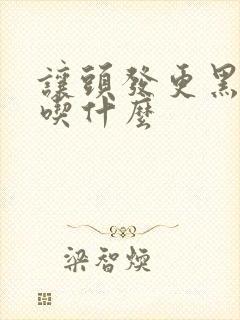 讓頭發更黑
喫什麼
梁智煥